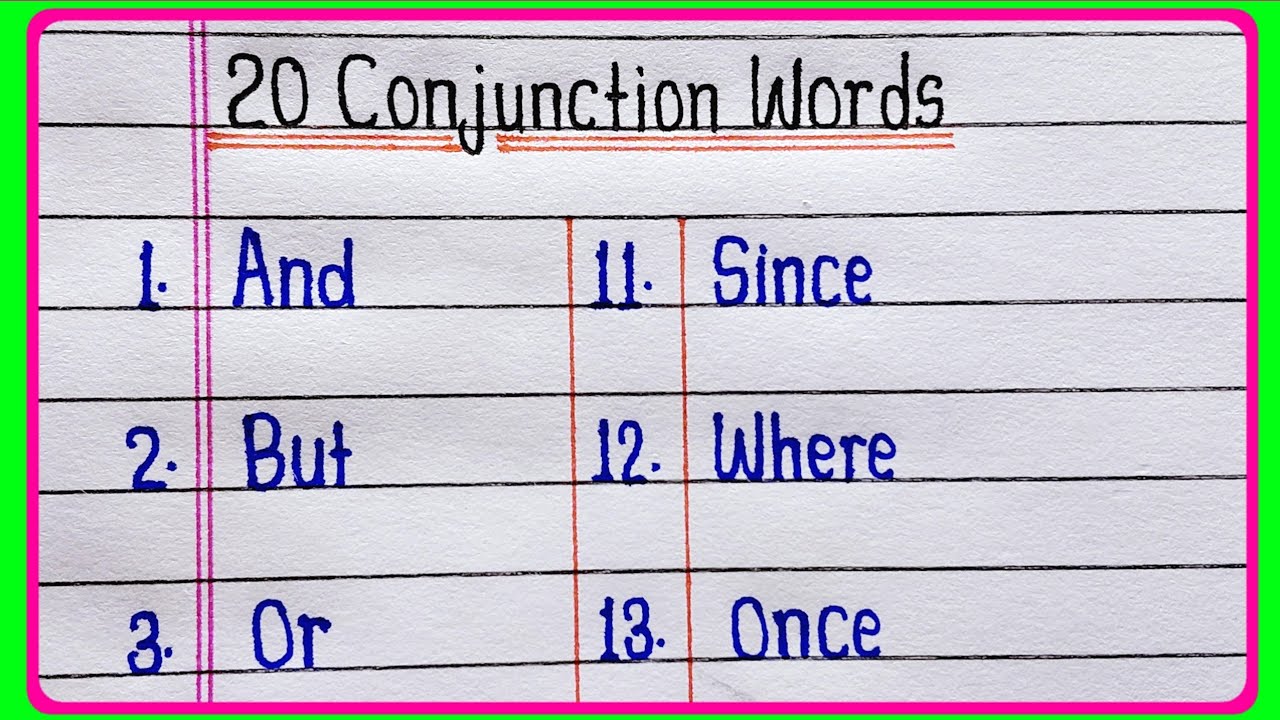 20 Conjunction Words
1. And 11. Since
2. But 12. Where
3. Or 13. Once